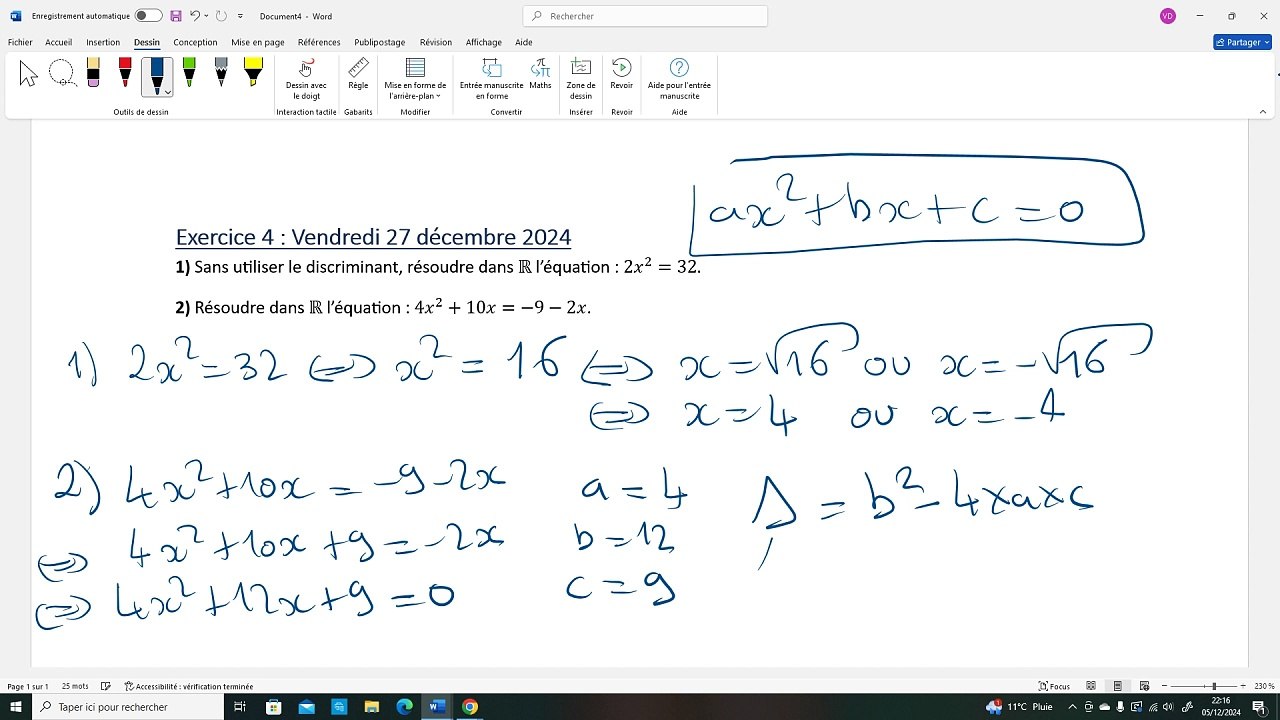 Enregistrement automatique Document4 - Word Rechercher VD
Fichier Accueil Insertion Dessin Conception Mise en page Références Publipostage Révision Affichage Aide Partager
Dessin avec le doigt Règle Mise en forme de l'arrière-plan Entrée manuscrite en forme Maths Zone de dessin Revoir Aide pour l'entrée manuscrite
Outils de dessin Interaction tactile Gabarits Modifier Convertir Insérer Revoir Aide
ax²+bx+c=0
Exercice 4 : Vendredi 27 décembre 2024
1) Sans utiliser le discriminant, résoudre dans ℝ l'équation : 2x² = 32.
2) Résoudre dans ℝ l'équation : 4x² + 10x = −9 − 2x.
1) 2x²=32 ⇔ x² = 16 ⇔ x=√16 ou x=-√16
⇔ x=4 ou x=-4
2) 4x²+10x = -9-2x a=4 Δ = b²-4×a×c
⇔ 4x²+10x+9=-2x b=12
⇔ 4x²+12x+9=0 c=9
Page 1 sur 1 25 mots Accessibilité : vérification terminée Focus 230 %
Taper ici pour rechercher 11°C Pluie 22:16
05/12/2024